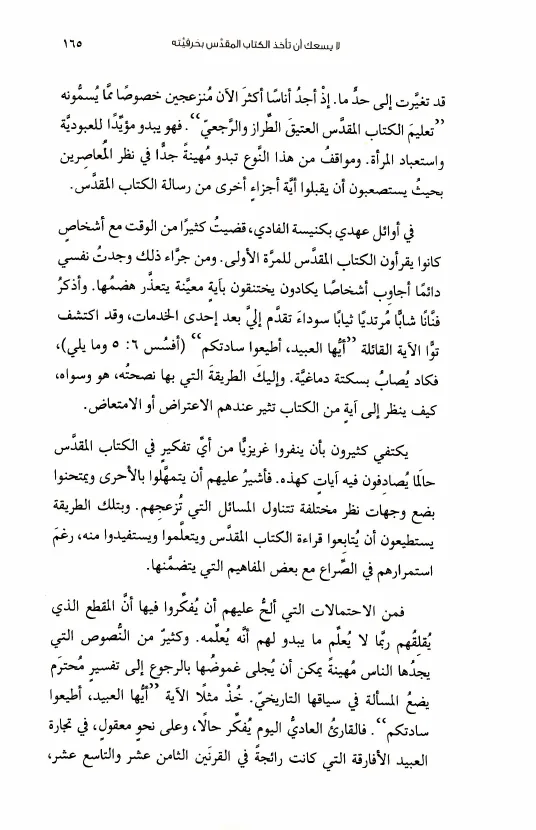 لا يسعك أن تأخذ الكتاب المقدّس بحَرفيَّته ١٦٥
قد تغيَّرت إلى حدٍّ ما. إذْ أجدُ أناسًا أكثرَ الآن مُنزعجين خصوصًا ممَّا يُسمُّونه
”تعليمَ الكتاب المقدَّس العتيقَ الطِّراز والرَّجعيّ“. فهو يبدو مؤيِّدًا للعبوديَّة
واستعباد المرأة. ومواقفُ من هذا النَّوع تبدو مُهينةً جدًّا في نظر المُعاصِرين
بحيثُ يستصعبون أن يقبلوا أيَّة أجزاءٍ أخرى من رسالة الكتاب المقدَّس.
في أوائل عهدي بكنيسة الفادي، قضيتُ كثيرًا من الوقت مع أشخاصٍ
كانوا يقرأون الكتاب المقدَّس للمرَّة الأولى. ومن جرَّاء ذلك وجدتُ نفسي
دائمًا أجاوِب أشخاصًا يكادون يختنقون بآيةٍ معيَّنة يتعذَّر هضمُها. وأذكرُ
فنَّانًا شابًّا مُرتديًا ثيابًا سوداءَ تقدَّم إليَّ بعد إحدى الخدمات، وقد اكتشف
توًّا الآية القائلة ”أيُّها العبيد، أطيعوا سادتكم“ (أفسُس ٦: ٥ وما يلي)،
فكاد يُصابُ بسكتة دماغيَّة. وإليكَ الطريقةَ التي بها نصحتُه، هو وسواه،
كيف ينظر إلى آيةٍ من الكتاب تثير عندهم الاعتراض أو الامتعاض.
يكتفي كثيرون بأن ينفروا غريزيًّا من أيِّ تفكيرٍ في الكتاب المقدَّس
حالَما يُصادِفون فيه آياتٍ كهذه. فأشيرُ عليهم أن يتمهَّلوا بالأحرى ويمتحنوا
بضع وجهات نظر مختلفة تتناول المسائل التي تُزعجهم. وبتلك الطريقة
يستطيعون أن يُتابعوا قراءة الكتاب المقدَّس ويتعلَّموا ويستفيدوا منه، رغمَ
استمرارهم في الصِّراع مع بعض المفاهيم التي يتضمَّنها.
فمن الاحتمالات التي ألحُّ عليهم أن يُفكِّروا فيها أنَّ المقطع الذي
يُقلقُهم ربَّما لا يُعلِّم ما يبدو لهم أنَّه يُعلِّمه. وكثيرٌ من النُّصوص التي
يجدُها الناس مُهينةً يمكن أن يُجلى غموضُها بالرجوع إلى تفسيرٍ مُحترَم
يضعُ المسألة في سياقها التاريخيّ. خُذْ مثلًا الآية ”أيُّها العبيد، أطيعوا
سادتكم“. فالقارئُ العاديُّ اليوم يُفكِّر حالًا، وعلى نحوٍ معقولٍ، في تجارة
العبيد الأفارقة التي كانت رائجةً في القرنَين الثامن عشر والتاسع عشر،